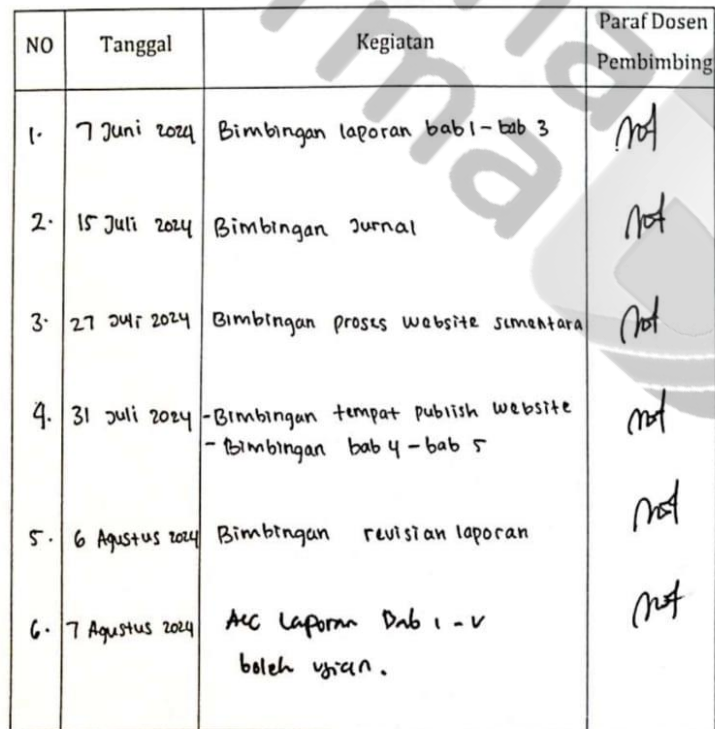 NO Tanggal Kegiatan Paraf Dosen Pembimbing
1. 7 Juni 2024 Bimbingan laporan bab 1 - bab 3
2. 15 Juli 2024 Bimbingan Jurnal
3. 27 Juli 2024 Bimbingan proses website sementara
4. 31 Juli 2024 - Bimbingan tempat publish website
- Bimbingan bab 4 - bab 5
5. 6 Agustus 2024 Bimbingan revisian laporan
6. 7 Agustus 2024 Acc Laporan Bab I - V
boleh ujian.